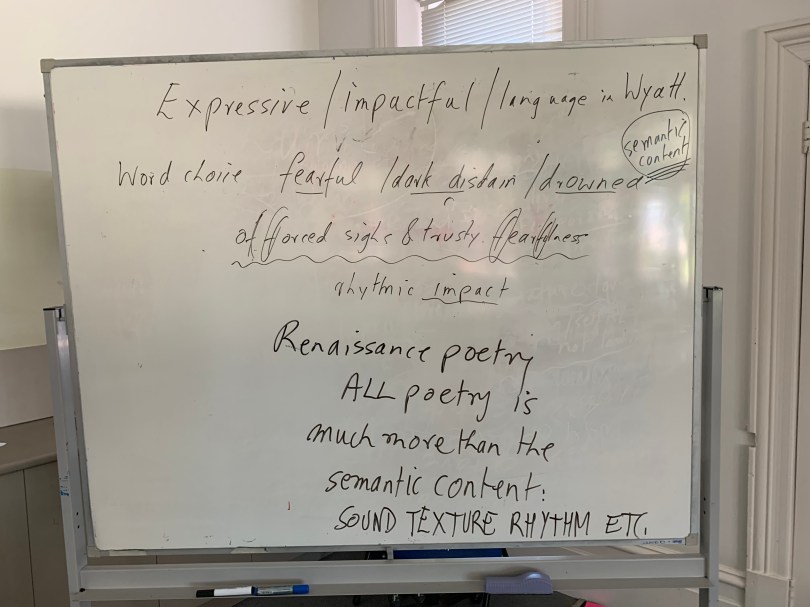 Expressive / impactful / language in Wyatt.
semantic content
Word choice fearful / dark disdain / drowned
of forced sighs & trusty fearfulness
rhythmic impact
Renaissance poetry
ALL poetry is
much more than the
semantic content:
SOUND TEXTURE RHYTHM ETC.